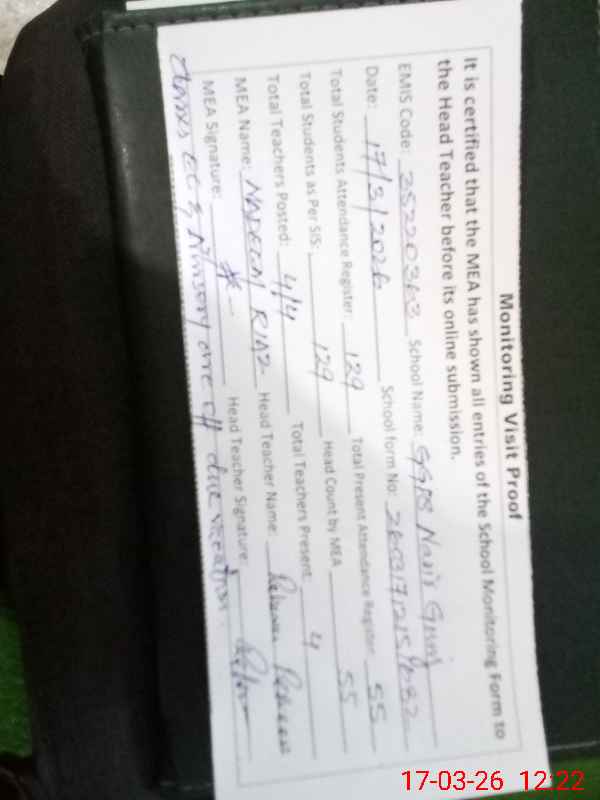 Monitoring Visit Proof
It is certified that the MEA has shown all entries of the School Monitoring Form to
the Head Teacher before its online submission.
EMIS Code: 35220363 School Name: GGPS
Date: 17/3/2026 School form No:
Total Students Attendance Register: 129 Total Present Attendance Register: 55
Total Students as Per SIS: 129 Head Count by MEA 55
Total Teachers Posted: 4/4 Total Teachers Present: 4
MEA Name: NADEEM RIAZ Head Teacher Name:
MEA Signature: Head Teacher Signature:
ECE, Nursery are off due vacation.
17-03-26 12:22